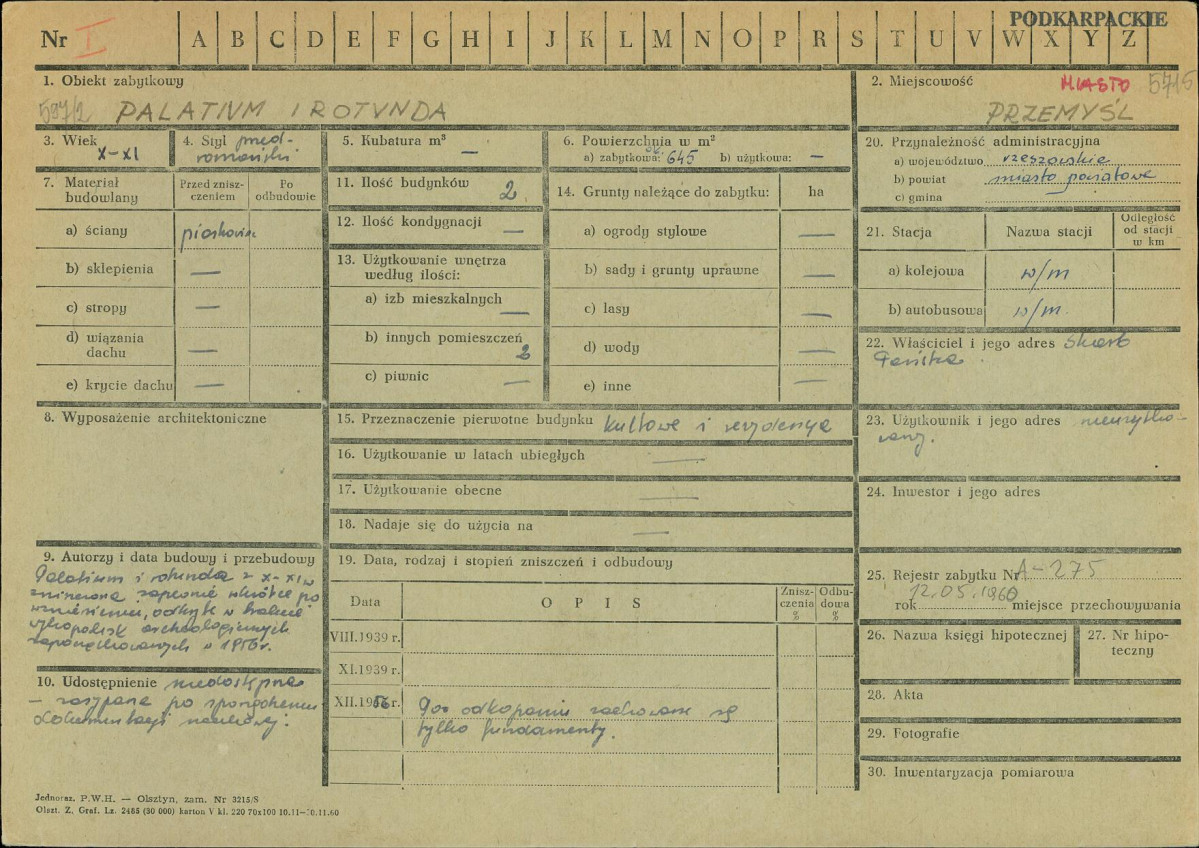 PODKARPACKIE
Nr I A B C D E F G H I J K L M N O P R S T U V W X Y Z
1. Obiekt zabytkowy
597/2 PALATIUM I ROTUNDA
2. Miejscowość MIASTO 5715
PRZEMYŚL
3. Wiek
X-XI
4. Styl przed-
romański
5. Kubatura m³ —
6. Powierzchnia w m²
a) zabytkowa: ok. 645 b) użytkowa: —
20. Przynależność administracyjna
a) województwo rzeszowskie
b) powiat miasto powiatowe
c) gmina —
7. Materiał
budowlany
Przed znisz-
czeniem
Po
odbudowie
a) ściany piaskowiec
b) sklepienia —
c) stropy —
d) wiązania
dachu —
e) krycie dachu —
11. Ilość budynków 2
12. Ilość kondygnacji —
13. Użytkowanie wnętrza
według ilości:
a) izb mieszkalnych —
b) innych pomieszczeń
2
c) piwnic —
14. Grunty należące do zabytku: ha
a) ogrody stylowe —
b) sady i grunty uprawne —
c) lasy —
d) wody —
e) inne —
21. Stacja Nazwa stacji
Odległość
od stacji
w km
a) kolejowa w/m
b) autobusowa w/m.
22. Właściciel i jego adres Skarb
Państwa.
8. Wyposażenie architektoniczne
15. Przeznaczenie pierwotne budynku kultowe i rezydencja
16. Użytkowanie w latach ubiegłych —
17. Użytkowanie obecne —
18. Nadaje się do użycia na —
23. Użytkownik i jego adres nieużytko-
wany.
24. Inwestor i jego adres
9. Autorzy i data budowy i przebudowy
Palatium i rotunda z X-XI w
zniszczone zapewne wkrótce po
wzniesieniu, odkryte w trakcie
wykopalisk archeologicznych
zapoczątkowanych w 1958r.
10. Udostępnienie niedostępne
- zasypane po sporządzeniu
dokumentacji naukowej.
19. Data, rodzaj i stopień zniszczeń i odbudowy
Data O P I S
Znisz-
czenia
%
Odbu-
dowa
%
VIII.1939 r.
XI.1939 r.
XII.1958r. Po odkopaniu zachowane są
tylko fundamenty.
25. Rejestr zabytku Nr A-275
12.05.1960
rok miejsce przechowywania
26. Nazwa księgi hipotecznej
27. Nr hipo-
teczny
28. Akta
29. Fotografie
30. Inwentaryzacja pomiarowa
Jednoraz. P.W.H. — Olsztyn, zam. Nr 3215/S
Olszt. Z. Graf. Lz. 2485 (30 000) karton V kl. 220 70x100 10.11-10.11.60